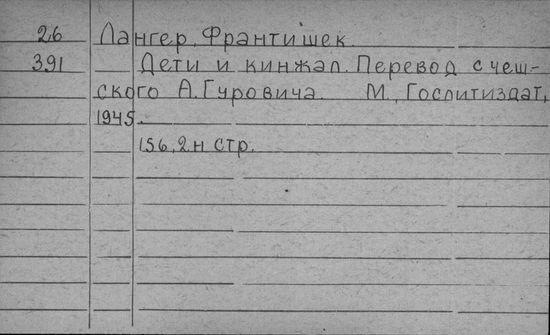 26 Лангер, Франтишек.
391 Дети и кинжал. Перевод с чеш-
ского А. Гуровича. М., Гослитиздат,
1945.
156, 2 н стр.